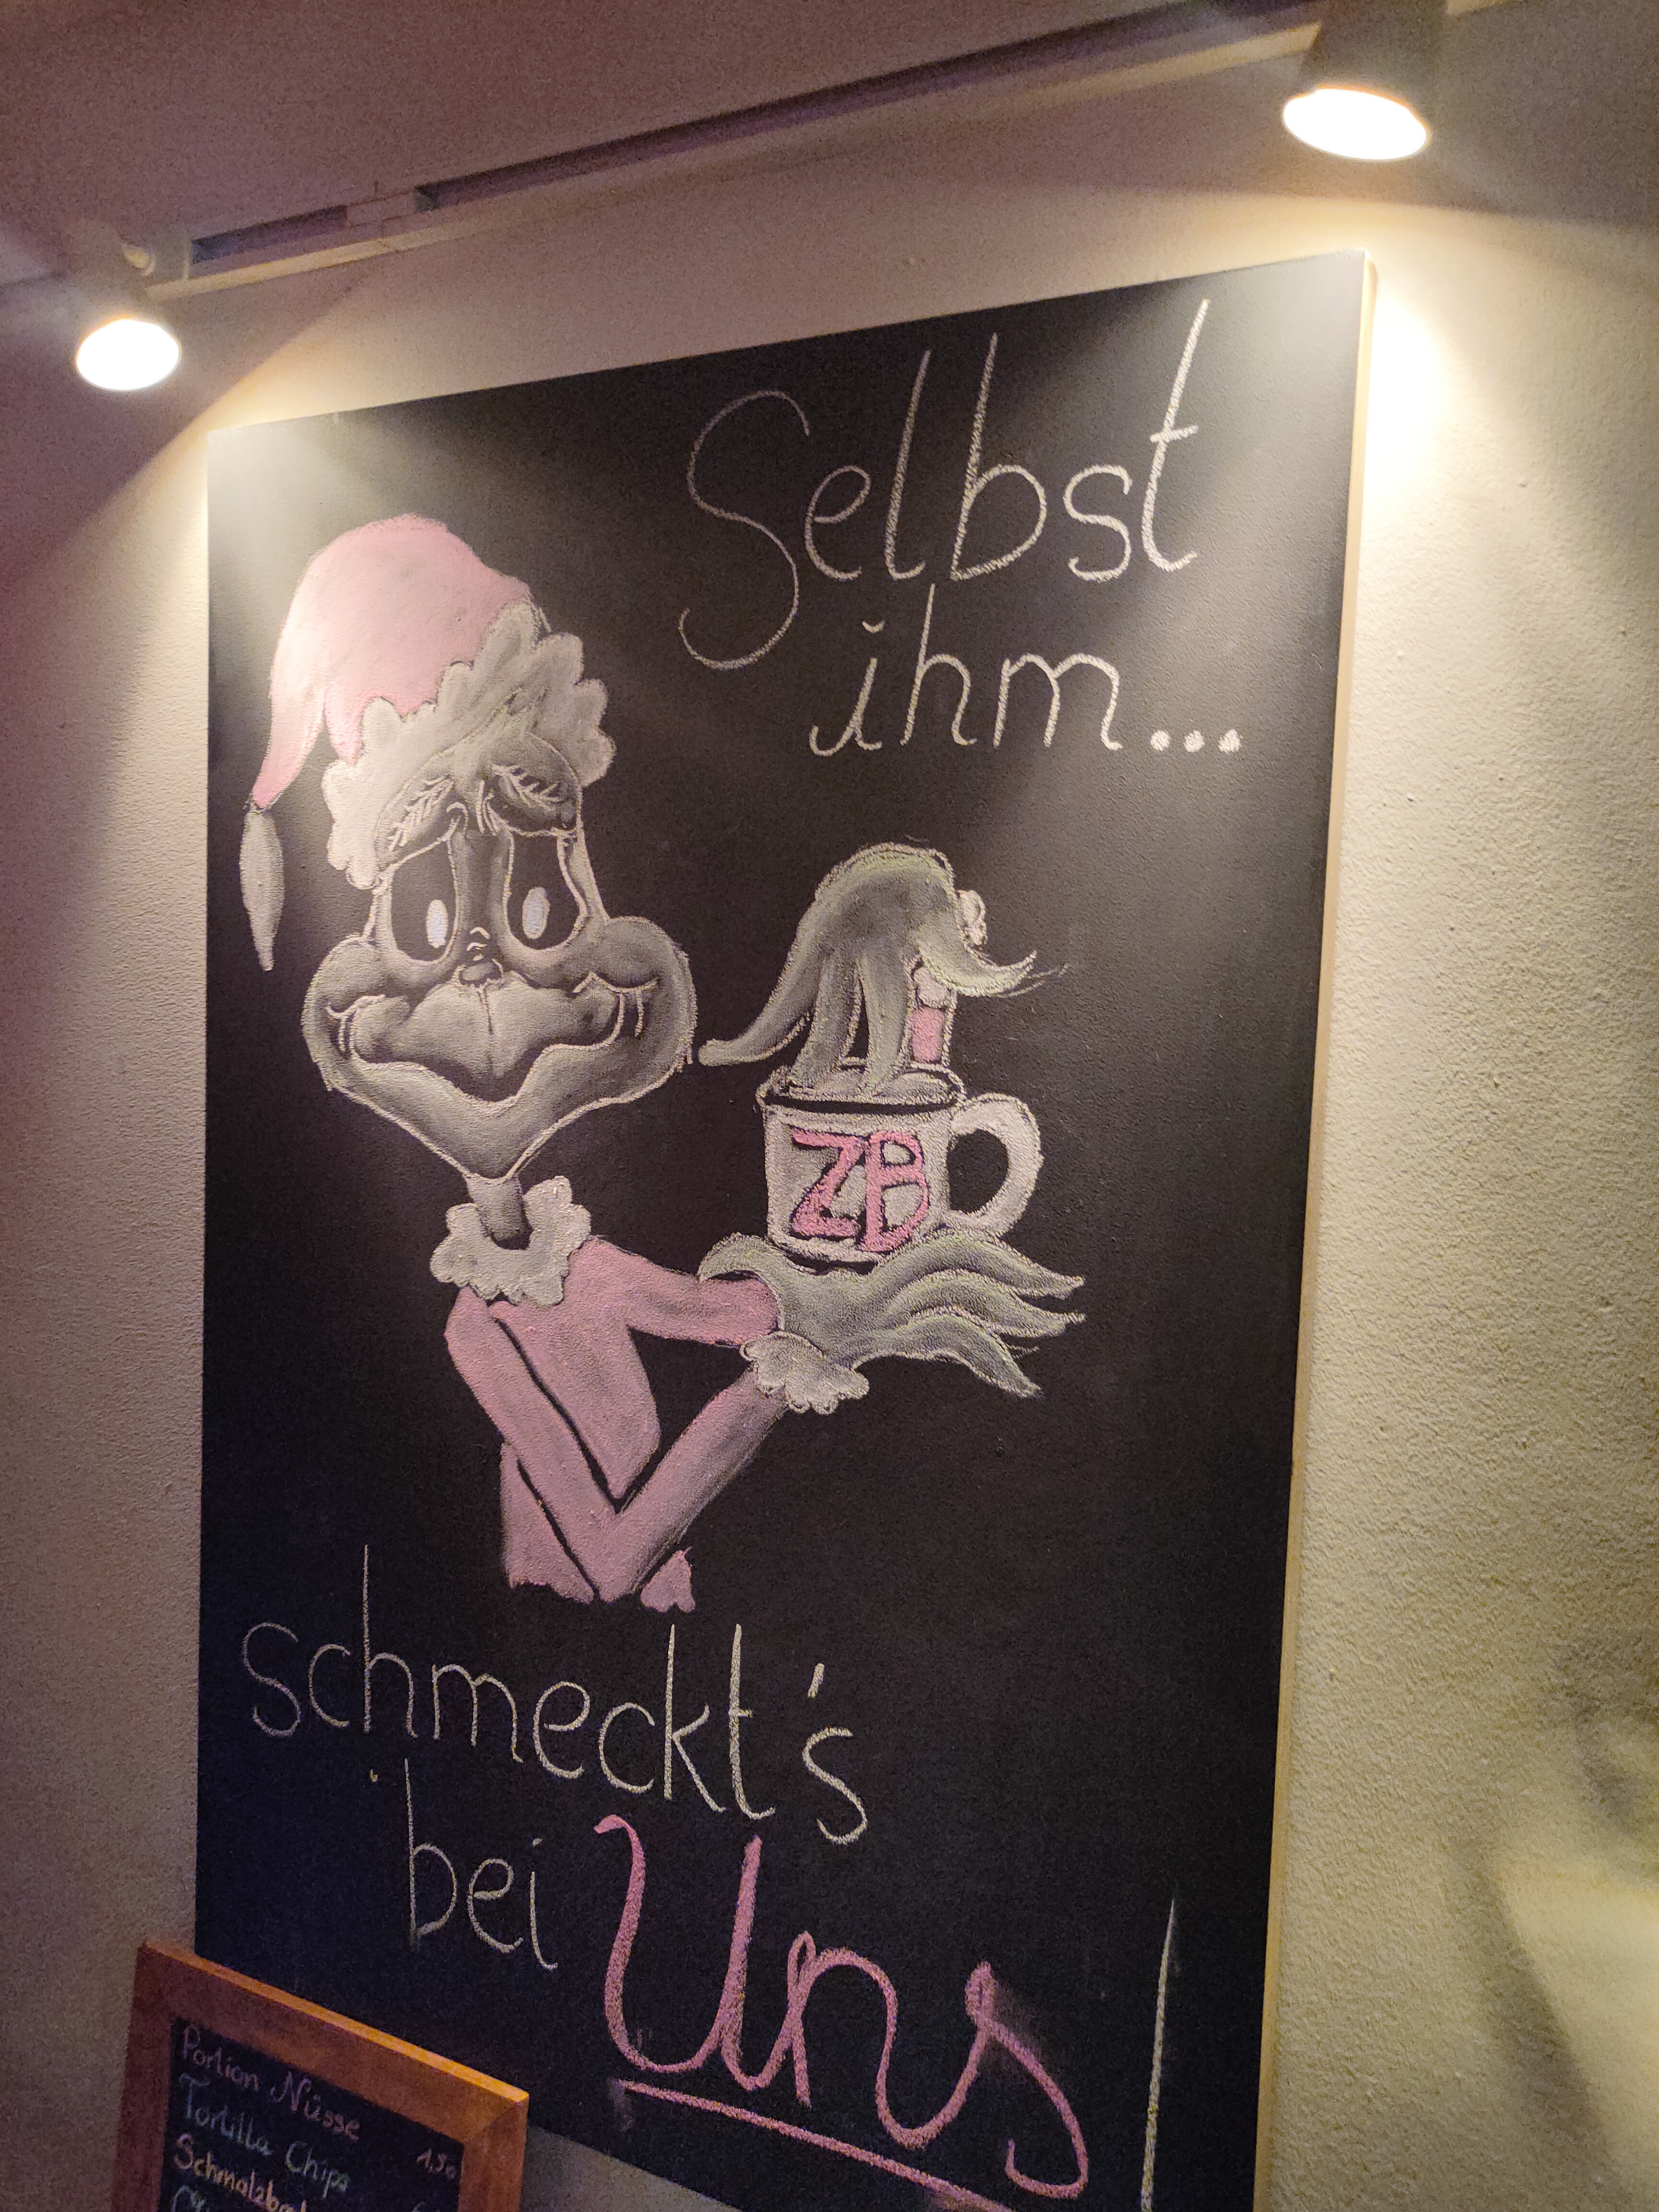 Selbst
ihm...
ZB
schmeckt's
bei Uns!
Portion Nüsse 1,50
Tortilla Chips